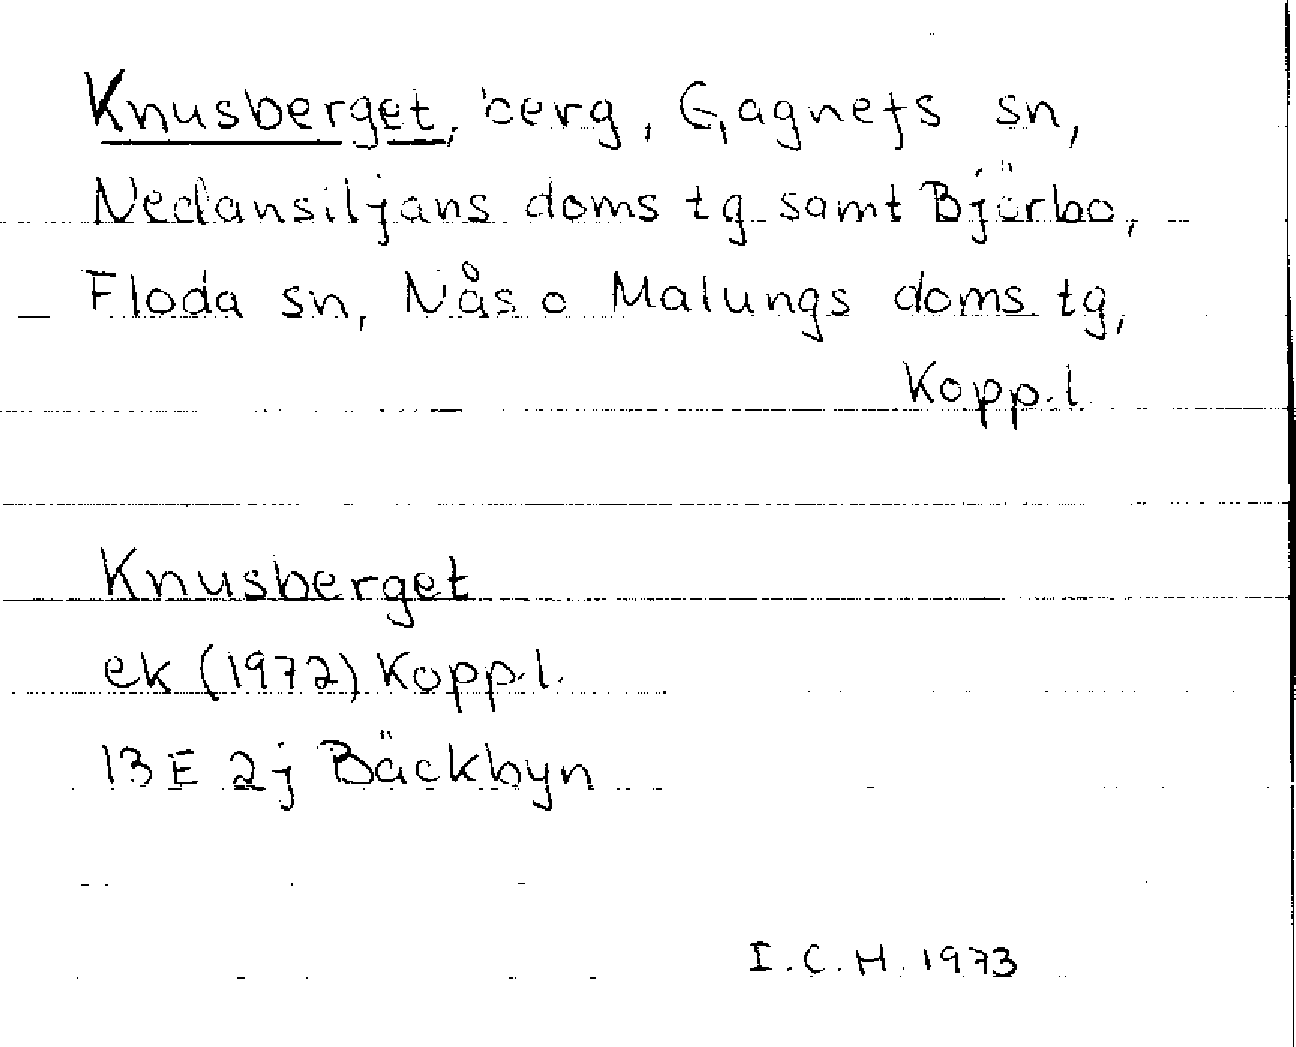 Knusberget, berg, Gagnefs sn,
Nedansiljans doms tg samt Björbo,
Floda sn, Nås o Malungs doms tg,
Kopp.l.
Knusberget
ek (1972) Kopp.l.
13E 2j Bäckbyn
I.C.H. 1973